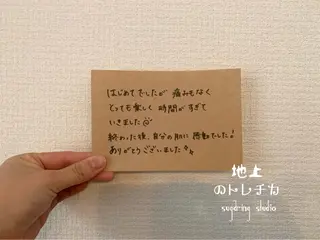 はじめてでしたが 痛みもなく
とっても楽しく 時間がすぎて
いきました
終わった後、自分の肌に 感動でした！
ありがとうございました
地上
のトレチカ
sugaring studio